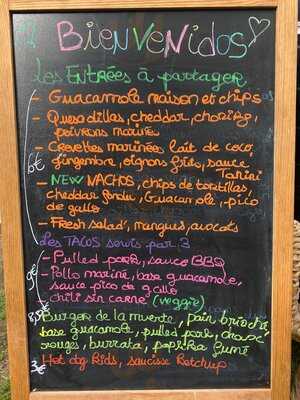 BIENVENIdos
Les ENTRÉES à partager
- Guacamole maison et chips
- Quesadillas, cheddar, chorizo,
poivrons marinés
- Crevettes marinées lait de coco,
gingembre, oignons frits, sauce
Tahini
6€
- NEW NACHOS, chips de tortillas,
cheddar fondu, Guacamole, pico
de gallo
- Fresh salad, mangues, avocats
Les TACOS servis par 3
- Pulled pork, sauce BBQ
9€
- Pollo mariné, base guacamole,
sauce pico de gallo
- chili sin carne (veggie)
Burger de la muerte, pain brioché
base guacamole, pulled pork, choux
rouges, burrata, paprika fumé
Hot dog Kids, saucisse Ketchup
3€